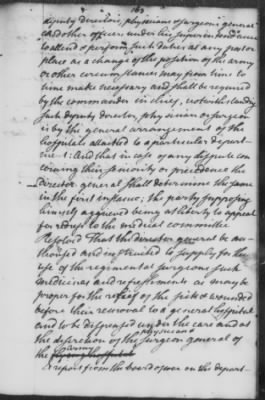 163
deputy director, physician or surgeon general
and other officers under his superintendance
to attend & perform such duties at any post or
place as a change of the position of the army
or other circumstances may from time to
time make necessary and shall be required
by the commander in chief, notwithstanding
such deputy director, physician or surgeon
is by the general arrangement of the
hospitals attached to a particular depart-
ment: And that in case of any dispute con-
cerning their seniority or precedence the
director general shall determine the same
in the first instance; the party supposing
himself aggrieved being at liberty to appeal
for redress to the medical committee
Resolved That the director general be au-
thorised and instructed to supply for the
use of the regimental surgeons such
medicines and refreshments as may be
proper for the relief of the sick & wounded
before their removal to a general hospital
and to be dispensed under the care and at
the discretion of the physician and surgeon general of
the army
A report from the board of war on the depart-